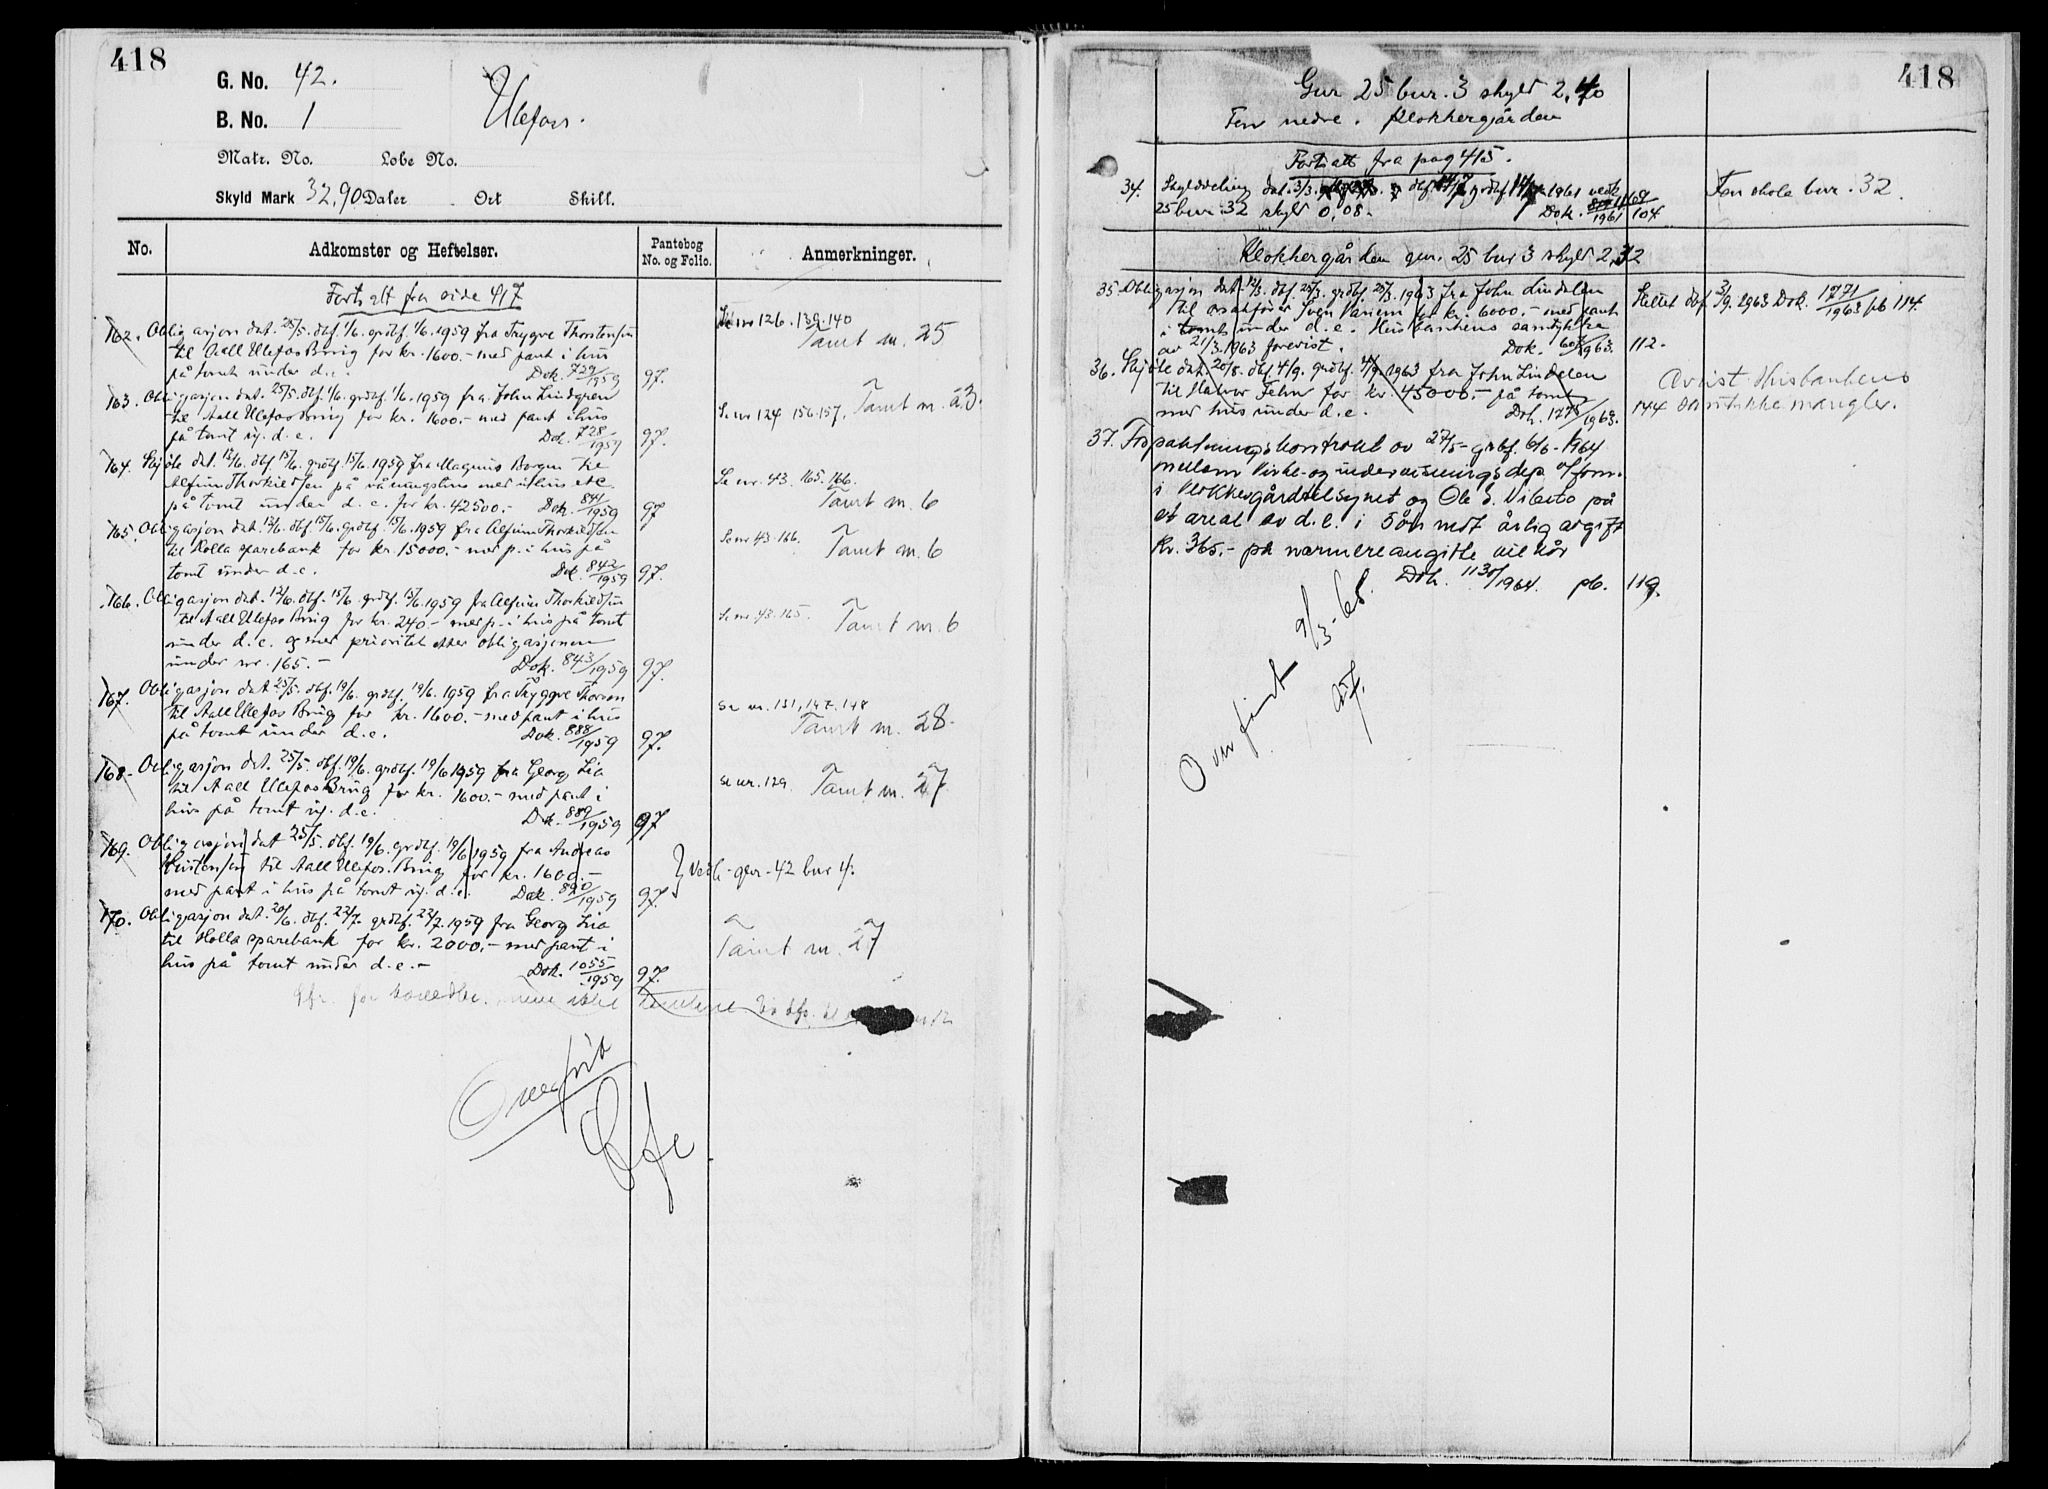 418
G. No. 42.
B. No. 1
Ulefoss.
Matr. No. Løbe No.
Skyld Mark 32,90 Daler Ort Skill.
No. Adkomster og Heftelser. Pantebog No. og Folio. Anmerkninger.
Fortsatt fra side 417
162. Obligasjon dat. 25/5. dbf. 1/6. grdbf. 1/6. 1959 fra Trygve Thorstensen
til Aall Ulefos Brug for kr. 1600.- med pant i hus
på tomt under d.e. Dok. 729/1959 97.
Se nr 126. 139. 140
Tomt nr. 25
163. Obligasjon dat. 25/5. dbf. 1/6. grdbf. 1/6. 1959 fra John Lindgren
til Aall Ulefos Brug for kr. 1600.- med pant i hus
på tomt u. d.e. Dok. 728/1959 97.
Se nr 124 156. 157. Tomt nr. 23.
164. Skjøte dat. 12/6. dbf. 15/6. grdbf. 15/6. 1959 fra Magnus Borgen til
Alfinn Thorkildsen på våningshus med uthus etc
på tomt under d.e. for kr. 42500.- Dok. 841/1959 97
Se nr. 43. 165. 166.
Tomt nr. 6
165. Obligasjon dat. 12/6. dbf. 15/6. grdbf. 15/6. 1959 fra Alfinn Thorkildsen
til Holla sparebank for kr. 15000.- med p. i hus på
tomt under d.e. Dok. 842/1959 97.
Se nr 43. 166. Tomt nr. 6
166. Obligasjon dat. 12/6. dbf. 15/6. grdbf. 15/6. 1959 fra Alfinn Thorkildsen
til Aall Ulefos Brug for kr. 240.- med p. i hus på tomt
under d.e. og med prioritet etter obligasjonen
under nr. 165.- Dok. 843/1959 97.
Se nr 43. 165. Tomt nr. 6
167. Obligasjon dat 25/5. dbf. 19/6. grdbf. 19/6. 1959 fra Tryggve Thorsen
til Aall Ulefos Brug for kr. 1600.- med pant i hus
på tomt under d.e. Dok. 888/1959 97.
se nr. 131, 147. 148
Tomt nr. 28.
168.- Obligasjon dat. 25/5. dbf. 19/6. grdbf. 19/6 1959 fra Georg Lia
til Aall Ulefos Brug for kr. 1600.- med pant i
hus på tomt u. d.e. Dok. 889/1959 97
se nr. 129 Tomt nr. 27
169. Obligasjon dat 25/5. dbf. 19/6. grdbf. 19/6 1959 fra Andreas
til Aall Ulefos. Brug for kr. 1600.-
med pant i hus på tomt u. d.e. Dok. 890/1959 97.
Vedk. gnr. 42 bnr 4.
170. Obligasjon dat. 20/6. dbf. 22/7. grdbf. 22/7. 1959 fra Georg Lia
til Holla sparebank for kr. 2000.- med pant i
hus på tomt under d.e.- Dok. 1055/1959 97.
Tomt nr. 27
Overført
418
Gnr 25 bnr. 3 skyld 2,40
Fen nedre. Klokkergården
Fortsatt fra pag 415.
34. Skylddeling dat. 3/3. dbf 14/7 grdbf. 14/7 1961 vedk
25 bnr. 32 skyld 0,08.- Dok. 1169/1961 104
Fen skole bnr. 32
Klokkergården gnr. 25 bnr 3 skyld 2,32
35. Obligasjon dat. 12/3. dbf. 25/3. grdbf. 25/3. 1963 fra John Lindelen
til for kr. 6000.- med pant
i tomt under d.e. Husbankens samtykke
av 21/3. 1963 forevist. Dok. 1963. 112.
Slettet dbf 3/9. 1963 Dok. 1271/1963 pb 114.
36. Skjøte dat. 20/8. dbf 4/9. grdbf. 4/9. 1963 fra John Lindelen
til Halvor Fehn for kr. 45000.- på tomt
med hus under d.e. Dok. 1275/1963. 144
Avvist. Husbankens
samtykke mangler.
37. Forpaktningskontrakt av 27/5- grdbf. 6/6- 1964
mellom Kirke- og undervisningsdep. v/form.
i Klokkergårdtilsynet og Ole S. Vibeto på
et areal av d.e. i 5 år mot årlig avgift
kr. 365.- på nærmere angitte vilkår
Dok. 1130/1964. pb. 119.
Overført 9/3-68.